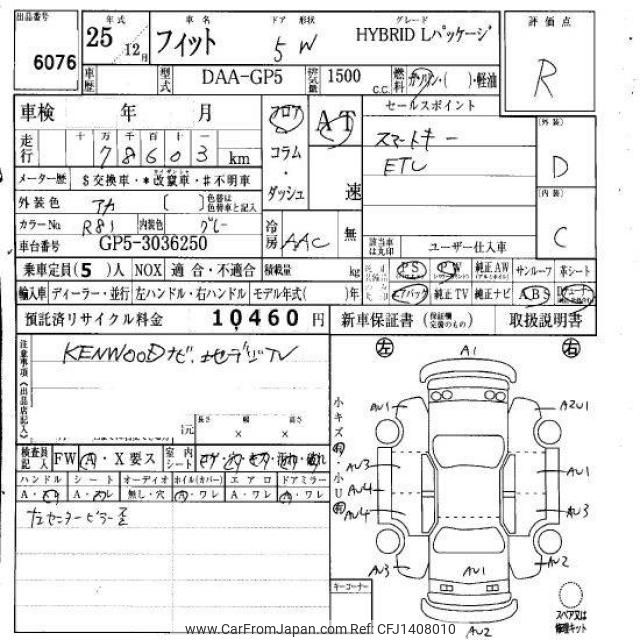 出品番号 年式 車名 ドア 形状 グレード 評価点
6076 25 12月 フィット 5 W HYBRID Lパッケージ R
車歴 型式 DAA-GP5 排気量 1500 c.c. 燃料 ガソリン・( )・軽油
車検 年 月 フロア AT セールスポイント
走行 十 万 千 百 十 一 コラム スマートキー (外装)
7 8 6 0 3 km ・ ETC D
メーター歴 $交換車・*改竄車・#不明車 ダッシュ 速 (内装)
外装色 アカ [ ] 色替は色替車と記入 C
カラーNo R81 内装色 グレー 冷房 AAC 無 該当車は丸印 ユーザー仕入車
車台番号 GP5-3036250
乗車定員(5)人 NOX 適合・不適合 積載量 kg PS PW 純正AW サンルーフ 革シート
輸入車 ディーラー・並行 左ハンドル・右ハンドル モデル年式( )年 エアバック 純正TV 純正ナビ ABS
預託済リサイクル料金 10,460円 新車保証書 (保証欄完備のもの) 取扱説明書
注意事項(出品店記入) KENWOODナビ、地デジTV 左 A1 右
長さ 幅 高さ
× ×
小キズ有・小U有
AU1 A2U1
検査員記入 FW A・X要ス 室内シート コゲ・穴・キズ・汚れ・破れ
AU3 AU1
ハンドル シート オーディオ ホイル(カバー) エアロ ドアミラー
AU4
A・ワレ 無し・穴 A・ワレ A・ワレ A・ワレ
AU4 AU3
左センターピラー歪
AU3 AU1 AU2
キーコーナー
スペア又は修理キット
AU2
www.CarFromJapan.com Ref: CFJ1408010